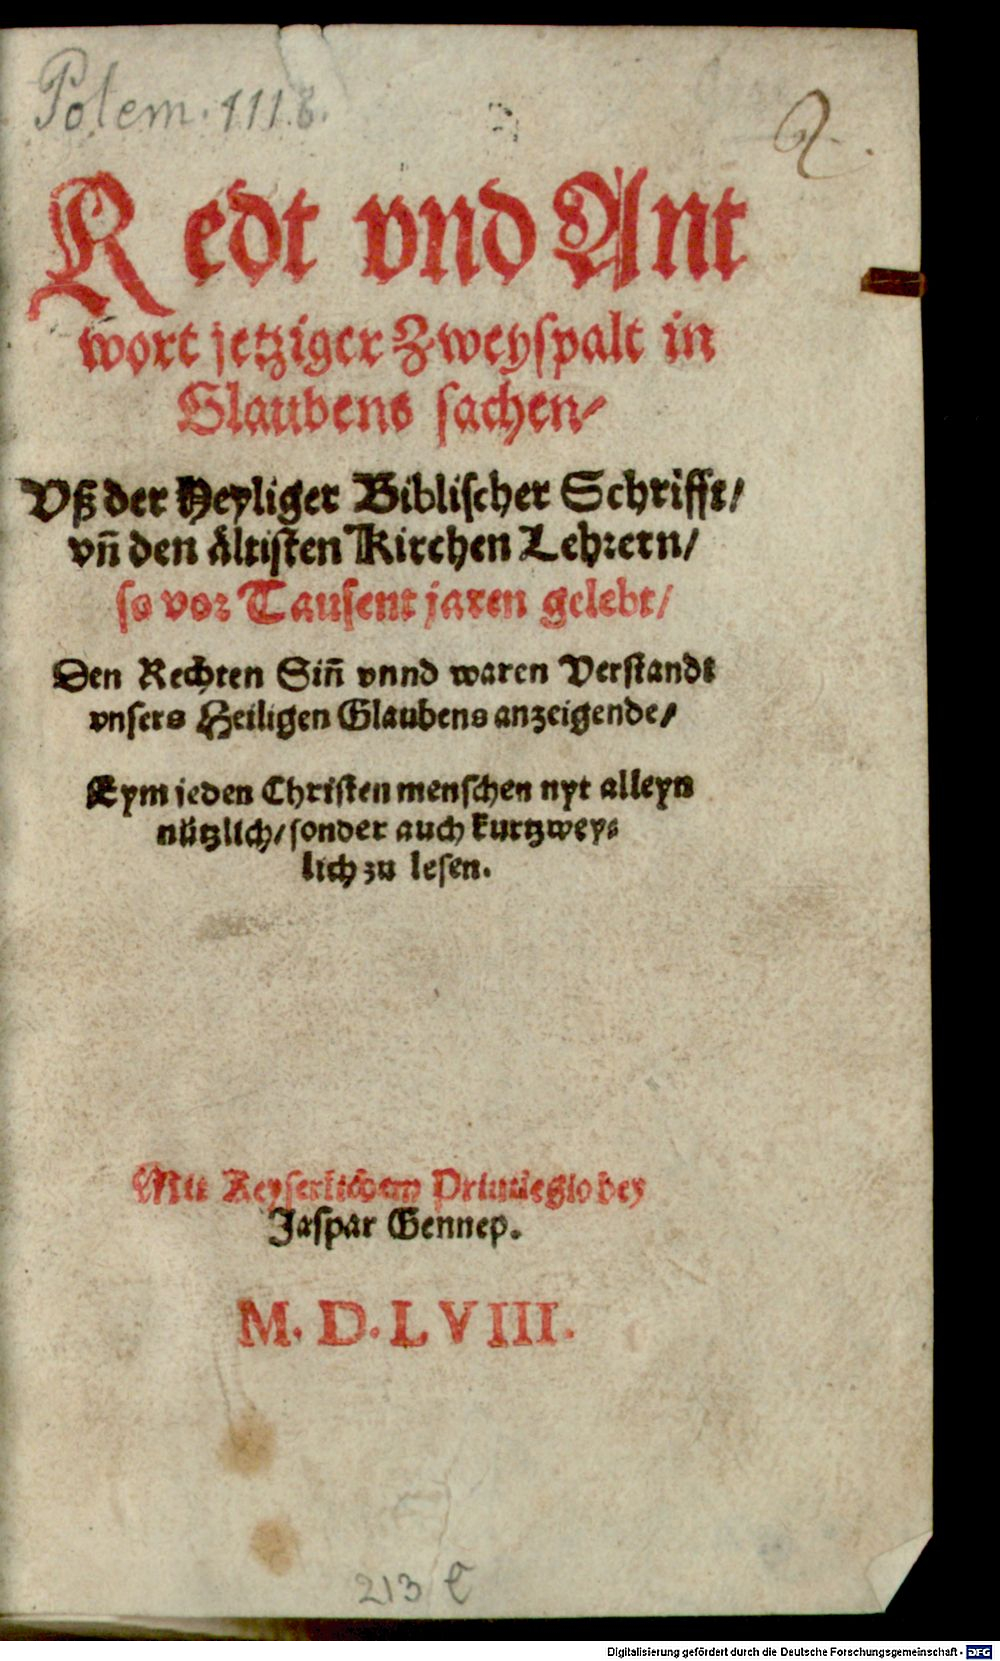 Polem. 1118.
2.
Redt vnd Ant
wort jetziger Zweyspalt in
Glaubens sachen/
Vß der Heyliger Biblischer Schrifft/
vn̄ den åltisten Kirchen Lehꝛern/
so voꝛ Tausent jaren gelebt/
Den Rechten Sin̄ vnnd waren Verstandt
vnsers Heiligen Glaubens anzeigende/
Eym jeden Christen menschen nyt alleyn
nützlich/ sonder auch kurtzwey⸗
lich zu lesen.
Mit Keyserlichem Priuilegio bey
Jaspar Gennep.
M. D. LVIII.
213 C
Digitalisierung gefördert durch die Deutsche Forschungsgemeinschaft - DFG